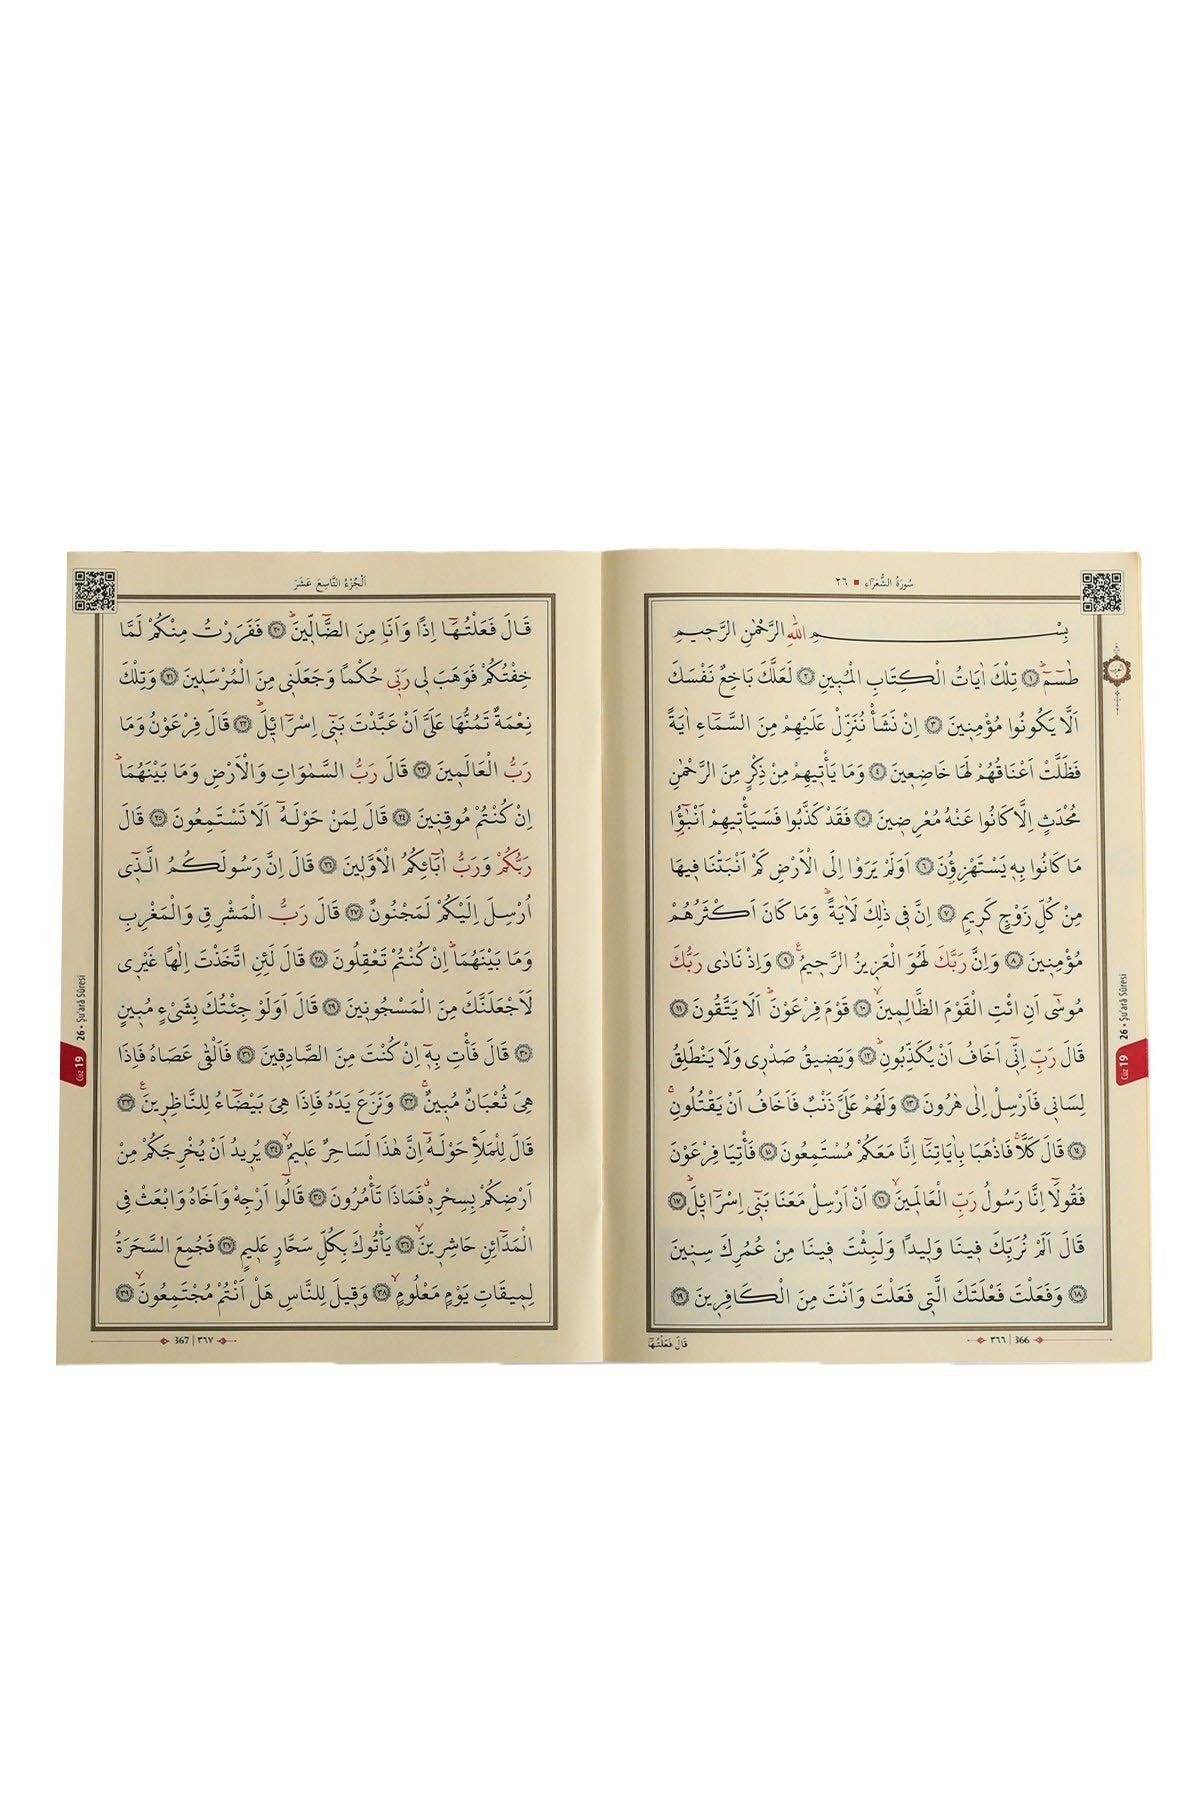 سُورَةُ الشُّعَرَاءِ ٢٦
بِسْمِ اللّٰهِ الرَّحْمٰنِ الرَّحِيمِ
طٰسٓمٓۜ ﴿١﴾ تِلْكَ اٰيَاتُ الْكِتَابِ الْمُب۪ينِ ﴿٢﴾ لَعَلَّكَ بَاخِعٌ نَفْسَكَ
اَلَّا يَكُونُوا مُؤْمِن۪ينَ ﴿٣﴾ اِنْ نَشَأْ نُنَزِّلْ عَلَيْهِمْ مِنَ السَّمَٓاءِ اٰيَةً
فَظَلَّتْ اَعْنَاقُهُمْ لَهَا خَاضِع۪ينَ ﴿٤﴾ وَمَا يَأْت۪يهِمْ مِنْ ذِكْرٍ مِنَ الرَّحْمٰنِ
مُحْدَثٍ اِلَّا كَانُوا عَنْهُ مُعْرِض۪ينَ ﴿٥﴾ فَقَدْ كَذَّبُوا فَسَيَأْت۪يهِمْ اَنْبٰٓؤُ۬ا
مَا كَانُوا بِه۪ يَسْتَهْزِؤُ۫نَ ﴿٦﴾ اَوَلَمْ يَرَوْا اِلَى الْاَرْضِ كَمْ اَنْبَتْنَا ف۪يهَا
مِنْ كُلِّ زَوْجٍ كَر۪يمٍ ﴿٧﴾ اِنَّ ف۪ي ذٰلِكَ لَاٰيَةًۜ وَمَا كَانَ اَكْثَرُهُمْ
مُؤْمِن۪ينَ ﴿٨﴾ وَاِنَّ رَبَّكَ لَهُوَ الْعَز۪يزُ الرَّح۪يمُ۟ ﴿٩﴾ وَاِذْ نَادٰى رَبُّكَ
مُوسٰٓى اَنِ ائْتِ الْقَوْمَ الظَّالِم۪ينَۙ ﴿١٠﴾ قَوْمَ فِرْعَوْنَۜ اَلَا يَتَّقُونَ ﴿١١﴾
قَالَ رَبِّ اِنّ۪ٓي اَخَافُ اَنْ يُكَذِّبُونِۜ ﴿١٢﴾ وَيَض۪يقُ صَدْر۪ي وَلَا يَنْطَلِقُ
لِسَان۪ي فَاَرْسِلْ اِلٰى هٰرُونَ ﴿١٣﴾ وَلَهُمْ عَلَيَّ ذَنْبٌ فَاَخَافُ اَنْ يَقْتُلُونِۚ
﴿١٤﴾ قَالَ كَلَّاۚ فَاذْهَبَا بِاٰيَاتِنَٓا اِنَّا مَعَكُمْ مُسْتَمِعُونَ ﴿١٥﴾ فَأْتِيَا فِرْعَوْنَ
فَقُولَٓا اِنَّا رَسُولُ رَبِّ الْعَالَم۪ينَۙ ﴿١٦﴾ اَنْ اَرْسِلْ مَعَنَا بَن۪ٓي اِسْرَٓائ۪لَۜ ﴿١٧﴾
قَالَ اَلَمْ نُرَبِّكَ ف۪ينَا وَل۪يدًا وَلَبِثْتَ ف۪ينَا مِنْ عُمُرِكَ سِن۪ينَ
﴿١٨﴾ وَفَعَلْتَ فَعْلَتَكَ الَّت۪ي فَعَلْتَ وَاَنْتَ مِنَ الْكَافِر۪ينَ ﴿١٩﴾
٣٦٦ | 366
قَالَ فَعَلْتُهَٓا
Cüz 19 26 • Şu'arâ Sûresi
اَلْجُزْءُ التَّاسِعَ عَشَرَ
قَالَ فَعَلْتُهَٓا اِذًا وَاَنَا۬ مِنَ الضَّٓالّ۪ينَۜ ﴿٢٠﴾ فَفَرَرْتُ مِنْكُمْ لَمَّا
خِفْتُكُمْ فَوَهَبَ ل۪ي رَبّ۪ي حُكْمًا وَجَعَلَن۪ي مِنَ الْمُرْسَل۪ينَ ﴿٢١﴾ وَتِلْكَ
نِعْمَةٌ تَمُنُّهَا عَلَيَّ اَنْ عَبَّدْتَ بَن۪ٓي اِسْرَٓائ۪لَۜ ﴿٢٢﴾ قَالَ فِرْعَوْنُ وَمَا
رَبُّ الْعَالَم۪ينَ ﴿٢٣﴾ قَالَ رَبُّ السَّمٰوَاتِ وَالْاَرْضِ وَمَا بَيْنَهُمَاۜ
اِنْ كُنْتُمْ مُوقِن۪ينَ ﴿٢٤﴾ قَالَ لِمَنْ حَوْلَهُٓ اَلَا تَسْتَمِعُونَ ﴿٢٥﴾ قَالَ
رَبُّكُمْ وَرَبُّ اٰبَٓائِكُمُ الْاَوَّل۪ينَ ﴿٢٦﴾ قَالَ اِنَّ رَسُولَكُمُ الَّذ۪ٓي
اُرْسِلَ اِلَيْكُمْ لَمَجْنُونٌ ﴿٢٧﴾ قَالَ رَبُّ الْمَشْرِقِ وَالْمَغْرِبِ
وَمَا بَيْنَهُمَاۜ اِنْ كُنْتُمْ تَعْقِلُونَ ﴿٢٨﴾ قَالَ لَئِنِ اتَّخَذْتَ اِلٰهًا غَيْر۪ي
لَاَجْعَلَنَّكَ مِنَ الْمَسْجُون۪ينَ ﴿٢٩﴾ قَالَ اَوَلَوْ جِئْتُكَ بِشَيْءٍ مُب۪ينٍ
﴿٣٠﴾ قَالَ فَأْتِ بِه۪ٓ اِنْ كُنْتَ مِنَ الصَّادِق۪ينَ ﴿٣١﴾ فَاَلْقٰى عَصَاهُ فَاِذَا
هِيَ ثُعْبَانٌ مُب۪ينٌۚ ﴿٣٢﴾ وَنَزَعَ يَدَهُ فَاِذَا هِيَ بَيْضَٓاءُ لِلنَّاظِر۪ينَ۟ ﴿٣٣﴾
قَالَ لِلْمَلَأِ حَوْلَهُٓ اِنَّ هٰذَا لَسَاحِرٌ عَل۪يمٌۙ ﴿٣٤﴾ يُر۪يدُ اَنْ يُخْرِجَكُمْ مِنْ
اَرْضِكُمْ بِسِحْرِه۪ۗ فَمَاذَا تَأْمُرُونَ ﴿٣٥﴾ قَالُٓوا اَرْجِهْ وَاَخَاهُ وَابْعَثْ فِي
الْمَدَٓائِنِ حَاشِر۪ينَۙ ﴿٣٦﴾ يَأْتُوكَ بِكُلِّ سَحَّارٍ عَل۪يمٍ ﴿٣٧﴾ فَجُمِعَ السَّحَرَةُ
لِم۪يقَاتِ يَوْمٍ مَعْلُومٍۙ ﴿٣٨﴾ وَق۪يلَ لِلنَّاسِ هَلْ اَنْتُمْ مُجْتَمِعُونَۙ ﴿٣٩﴾
367 | ٣٦٧
Cüz 19 26 • Şu'arâ Sûresi